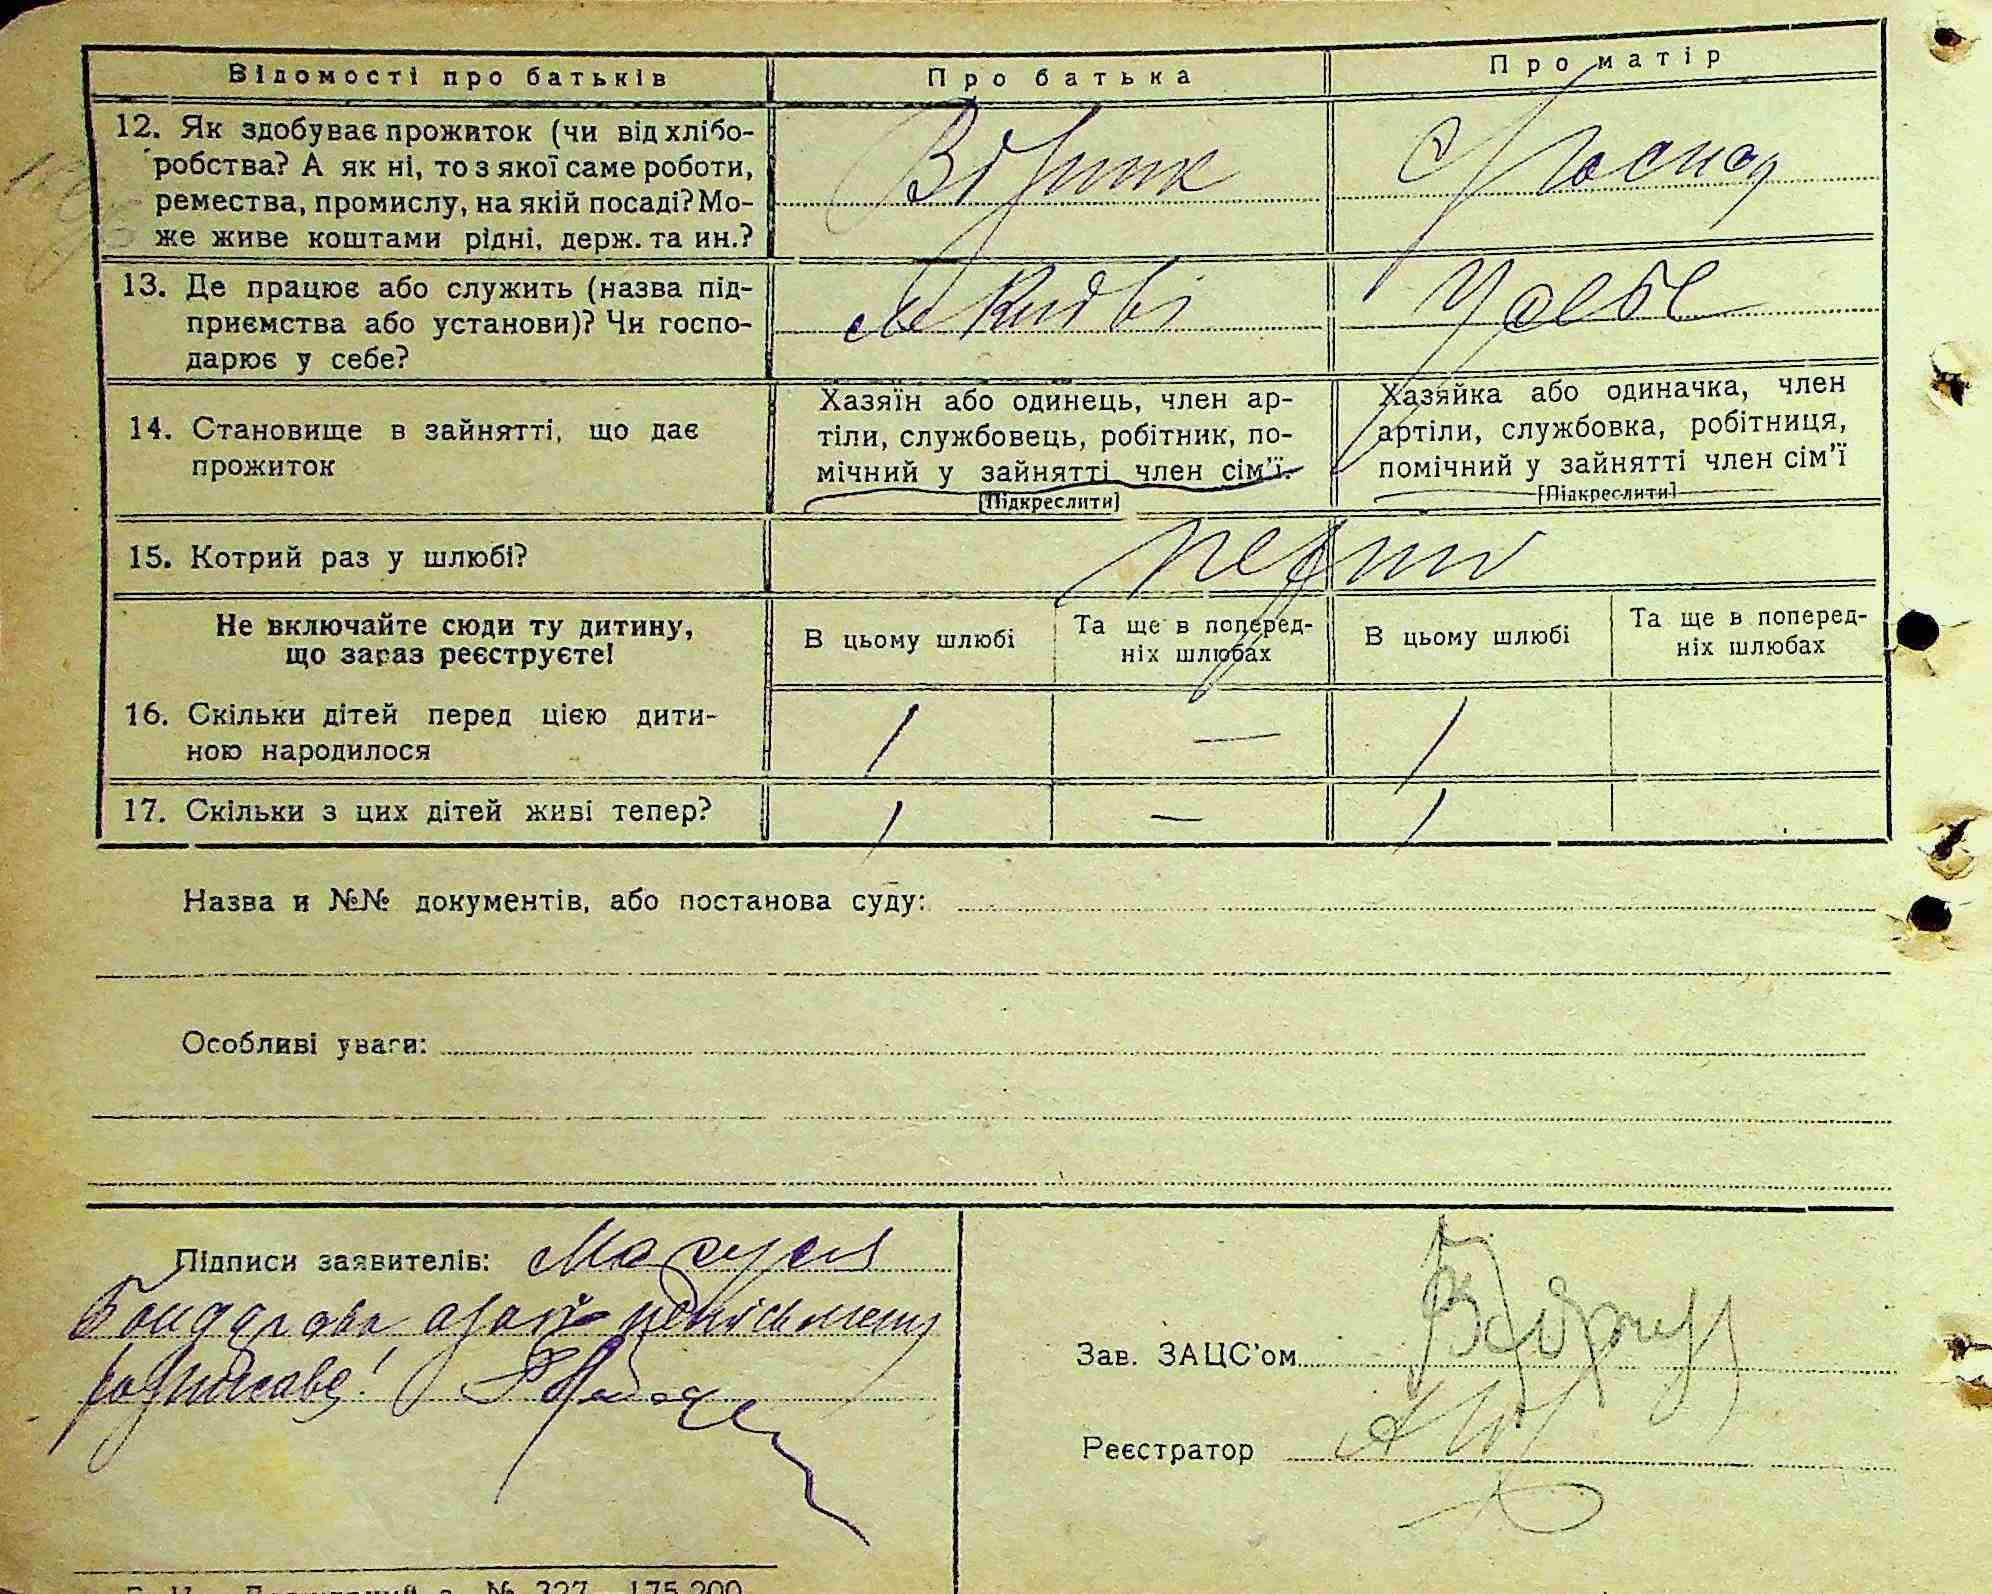 Відомості про батьків Про батька Про матір
12. Як здобуває прожиток (чи від хлібо-
робства? А як ні, то з якої саме роботи,
ремества, промислу, на якій посаді? Мо-
же живе коштами рідні, держ. та ин.?
13. Де працює або служить (назва під-
приємства або установи)? Чи госпо-
дарює у себе?
У себе
14. Становище в зайнятті, що дає
прожиток
Хазяїн або одинець, член ар-
тіли, службовець, робітник, по-
мічний у зайнятті член сім'ї.
[Підкреслити]
Хазяйка або одиначка, член
артіли, службовка, робітниця,
помічний у зайнятті член сім'ї
[Підкреслити]
15. Котрий раз у шлюбі?
перший
Не включайте сюди ту дитину,
що зараз реєструєте!
В цьому шлюбі
Та ще в поперед-
ніх шлюбах
В цьому шлюбі
Та ще в поперед-
ніх шлюбах
16. Скільки дітей перед цією дити-
ною народилося
1 — 1
17. Скільки з цих дітей живі тепер?
1 — 1
Назва и №№ документів, або постанова суду:
Особливі уваги:
Підписи заявителів:
Зав. ЗАЦС'ом
Реєстратор
№ 327 175.200